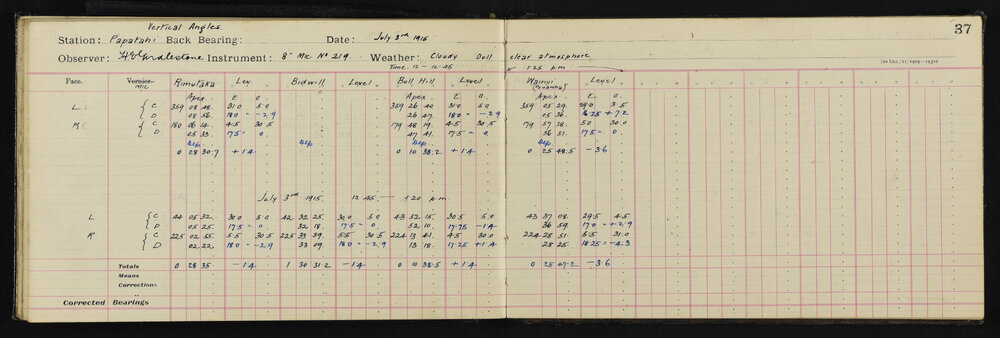 Vertical Angles. 37
Station: Papatahi Back Bearing: Date: July 3rd 1915
Observer: Instrument: 8" Mic No 219. Weather: Cloudy Dull clear atmosphere
Time 12 - 12.45 1.25 pm
Face. Vernier- Mic Rimutaka Lev Bidwill Level. Bull Hill Level. Wainui Level
Apex. E O. Apex. E O. Apex. E O.
L C 359 08 48. 31.0 5.0 359 26 42. 31.0 5.0 359 05 29. 29.0 3.5
D 08 56. 18.0 - -2.9 26 47. 18.0 - -2.9 05 36. 16.25 +7.2
R C 180 06 14. 4.5 30.5 179 48 19. 4.5 30.5 179 57 28. 5.0 30.0
D 05 33. 17.5 = 0. 47 41. 17.5 = 0. 56 51. 17.5 = 0.
Dep. Dep. Dep. Dep.
0 28 30.7 +1.4 0 10 38.2 +1.4 0 25 48.5 -3.6
July 3rd 1915. 12.45 — 1.20 pm
L C 44 05 32. 30.0 5.0 42 32 25. 30.0 5.0 43 52 15. 30.5 5.0 43 37 08. 29.5 4.5
D 05 25. 17.5 = 0 32 18. 17.5 = 0 52 10. 17.75 -1.4 36 59. 17.0 = +2.9
R C 225 02 55. 5.5 30.5 225 33 39. 5.5 30.5 224 13 41. 4.5 30.5 224 28 51. 5.5 31.0
D 02 22. 18.0 - -2.9 33 09. 18.0 = -2.9 13 18. 17.25 +1.4 28 25. 18.25 = -4.3
Totals 0 28 35. -1.4 1 30 31.2 -1.4 0 10 38.5 +1.4 0 25 -3.6
Means
Corrections
Corrected Bearings